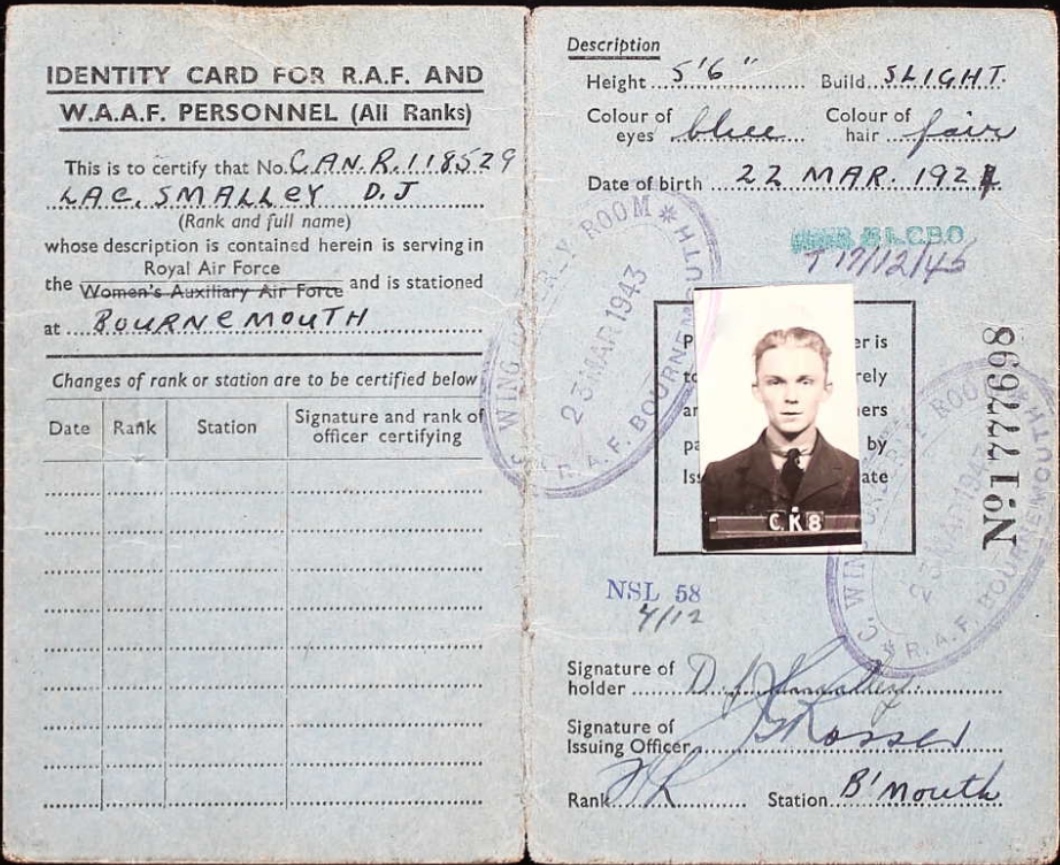 IDENTITY CARD FOR R.A.F. AND
W.A.A.F. PERSONNEL (All Ranks)
This is to certify that No. CAN.R.118529
LAC. SMALLEY D.J
(Rank and full name)
whose description is contained herein is serving in
the Royal Air Force
Women's Auxiliary Air Force and is stationed
at BOURNEMOUTH
Changes of rank or station are to be certified below
Date Rank Station Signature and rank of
officer certifying
Description
Height 5'6" Build SLIGHT.
Colour of eyes blue Colour of hair fair
Date of birth 22 MAR. 192
17/12/45
er is
rely
ners
by
Iss ate
C.K8
No 1777698
C. WING ORDERLY ROOM
23 MAR 1943
R.A.F. BOURNEMOUTH
C. WING ORDERLY ROOM
23 MAR 1943
R.A.F. BOURNEMOUTH
NSL 58
4/12
Signature of
holder D. J. Smalley.
Signature of
Issuing Officer Rosser
Rank F/L Station B'Mouth